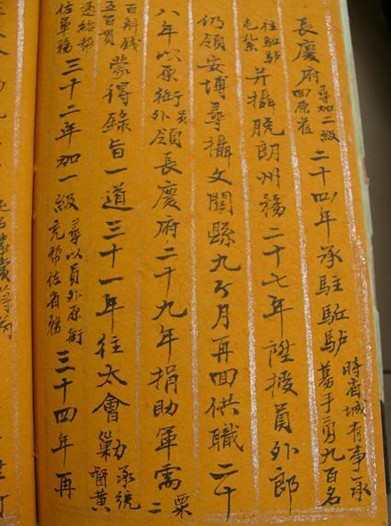 長慶府尋加二級四原二十四年承駐駈驴時省城有事承募手勇九百名
往駈驴屯紮并攝脫朗州務二十七年陞授員外郎
仍領安博尋攝文關縣九个月再回供職二十
八年以原銜員外領長慶府二十九年捐助軍需粟二
百斛錢五百貫蒙得錄旨一道三十一年往太會勦承統督黃
憑給幫佐軍務三十二年加一級尋以員外原銜充幫佐省務三十四年再